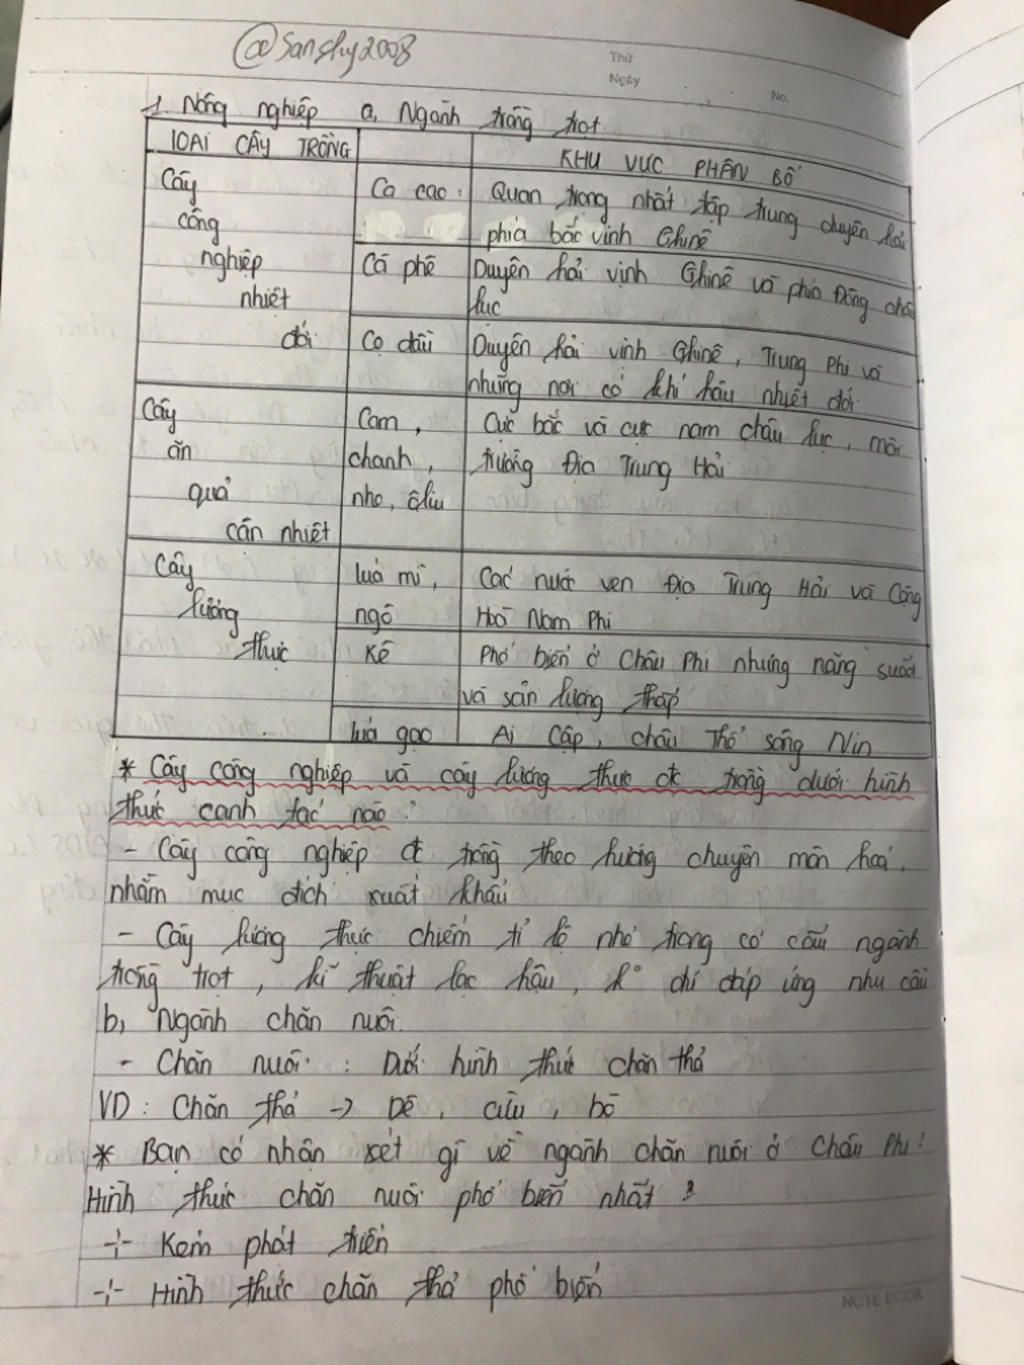 @Sanshy2008
Thứ
Ngày
No.
1. Nông nghiệp a, Ngành trồng trọt
LOẠI CÂY TRỒNG
KHU VỰC PHÂN BỐ
Cây
công
nghiệp
nhiệt
đới
Ca cao :
Quan trọng nhất tập trung duyên hải
phía bắc vịnh Ghinê
Cà phê
Duyên hải vịnh Ghinê và phía Đông châu
lục
Cọ dầu
Duyên hải vịnh Ghinê, Trung Phi và
những nơi có khí hậu nhiệt đới
Cây
ăn
quả
cận nhiệt
Cam,
chanh,
nho, ôliu
Cực bắc và cực nam châu lục, môi
trường Địa Trung Hải
Cây
lương
thực
luá mì,
ngô
Các nước ven Địa Trung Hải và Cộng
Hoà Nam Phi
Kê
Phổ biến ở Châu Phi nhưng năng suất
và sản lượng thấp
luá gạo
Ai Cập, châu thổ sông Nin
* Cây công nghiệp và cây lương thực đc trồng dưới hình
thức canh tác nào?
- Cây công nghiệp đc trồng theo hướng chuyên môn hoá,
nhằm mục đích xuất khẩu
- Cây lương thực chiếm tỉ lệ nhỏ trong cơ cấu ngành
trồng trọt, kĩ thuật lạc hậu, k° chỉ đáp ứng nhu cầu
b, Ngành chăn nuôi
- Chăn nuôi : Dưới hình thức chăn thả
VD : Chăn thả -> Dê, cừu, bò
* Bạn có nhận xét gì về ngành chăn nuôi ở Châu Phi?
Hình thức chăn nuôi phổ biến nhất ?
-:- Kém phát triển
-:- Hình thức chăn thả phổ biến
NOTE BOOK